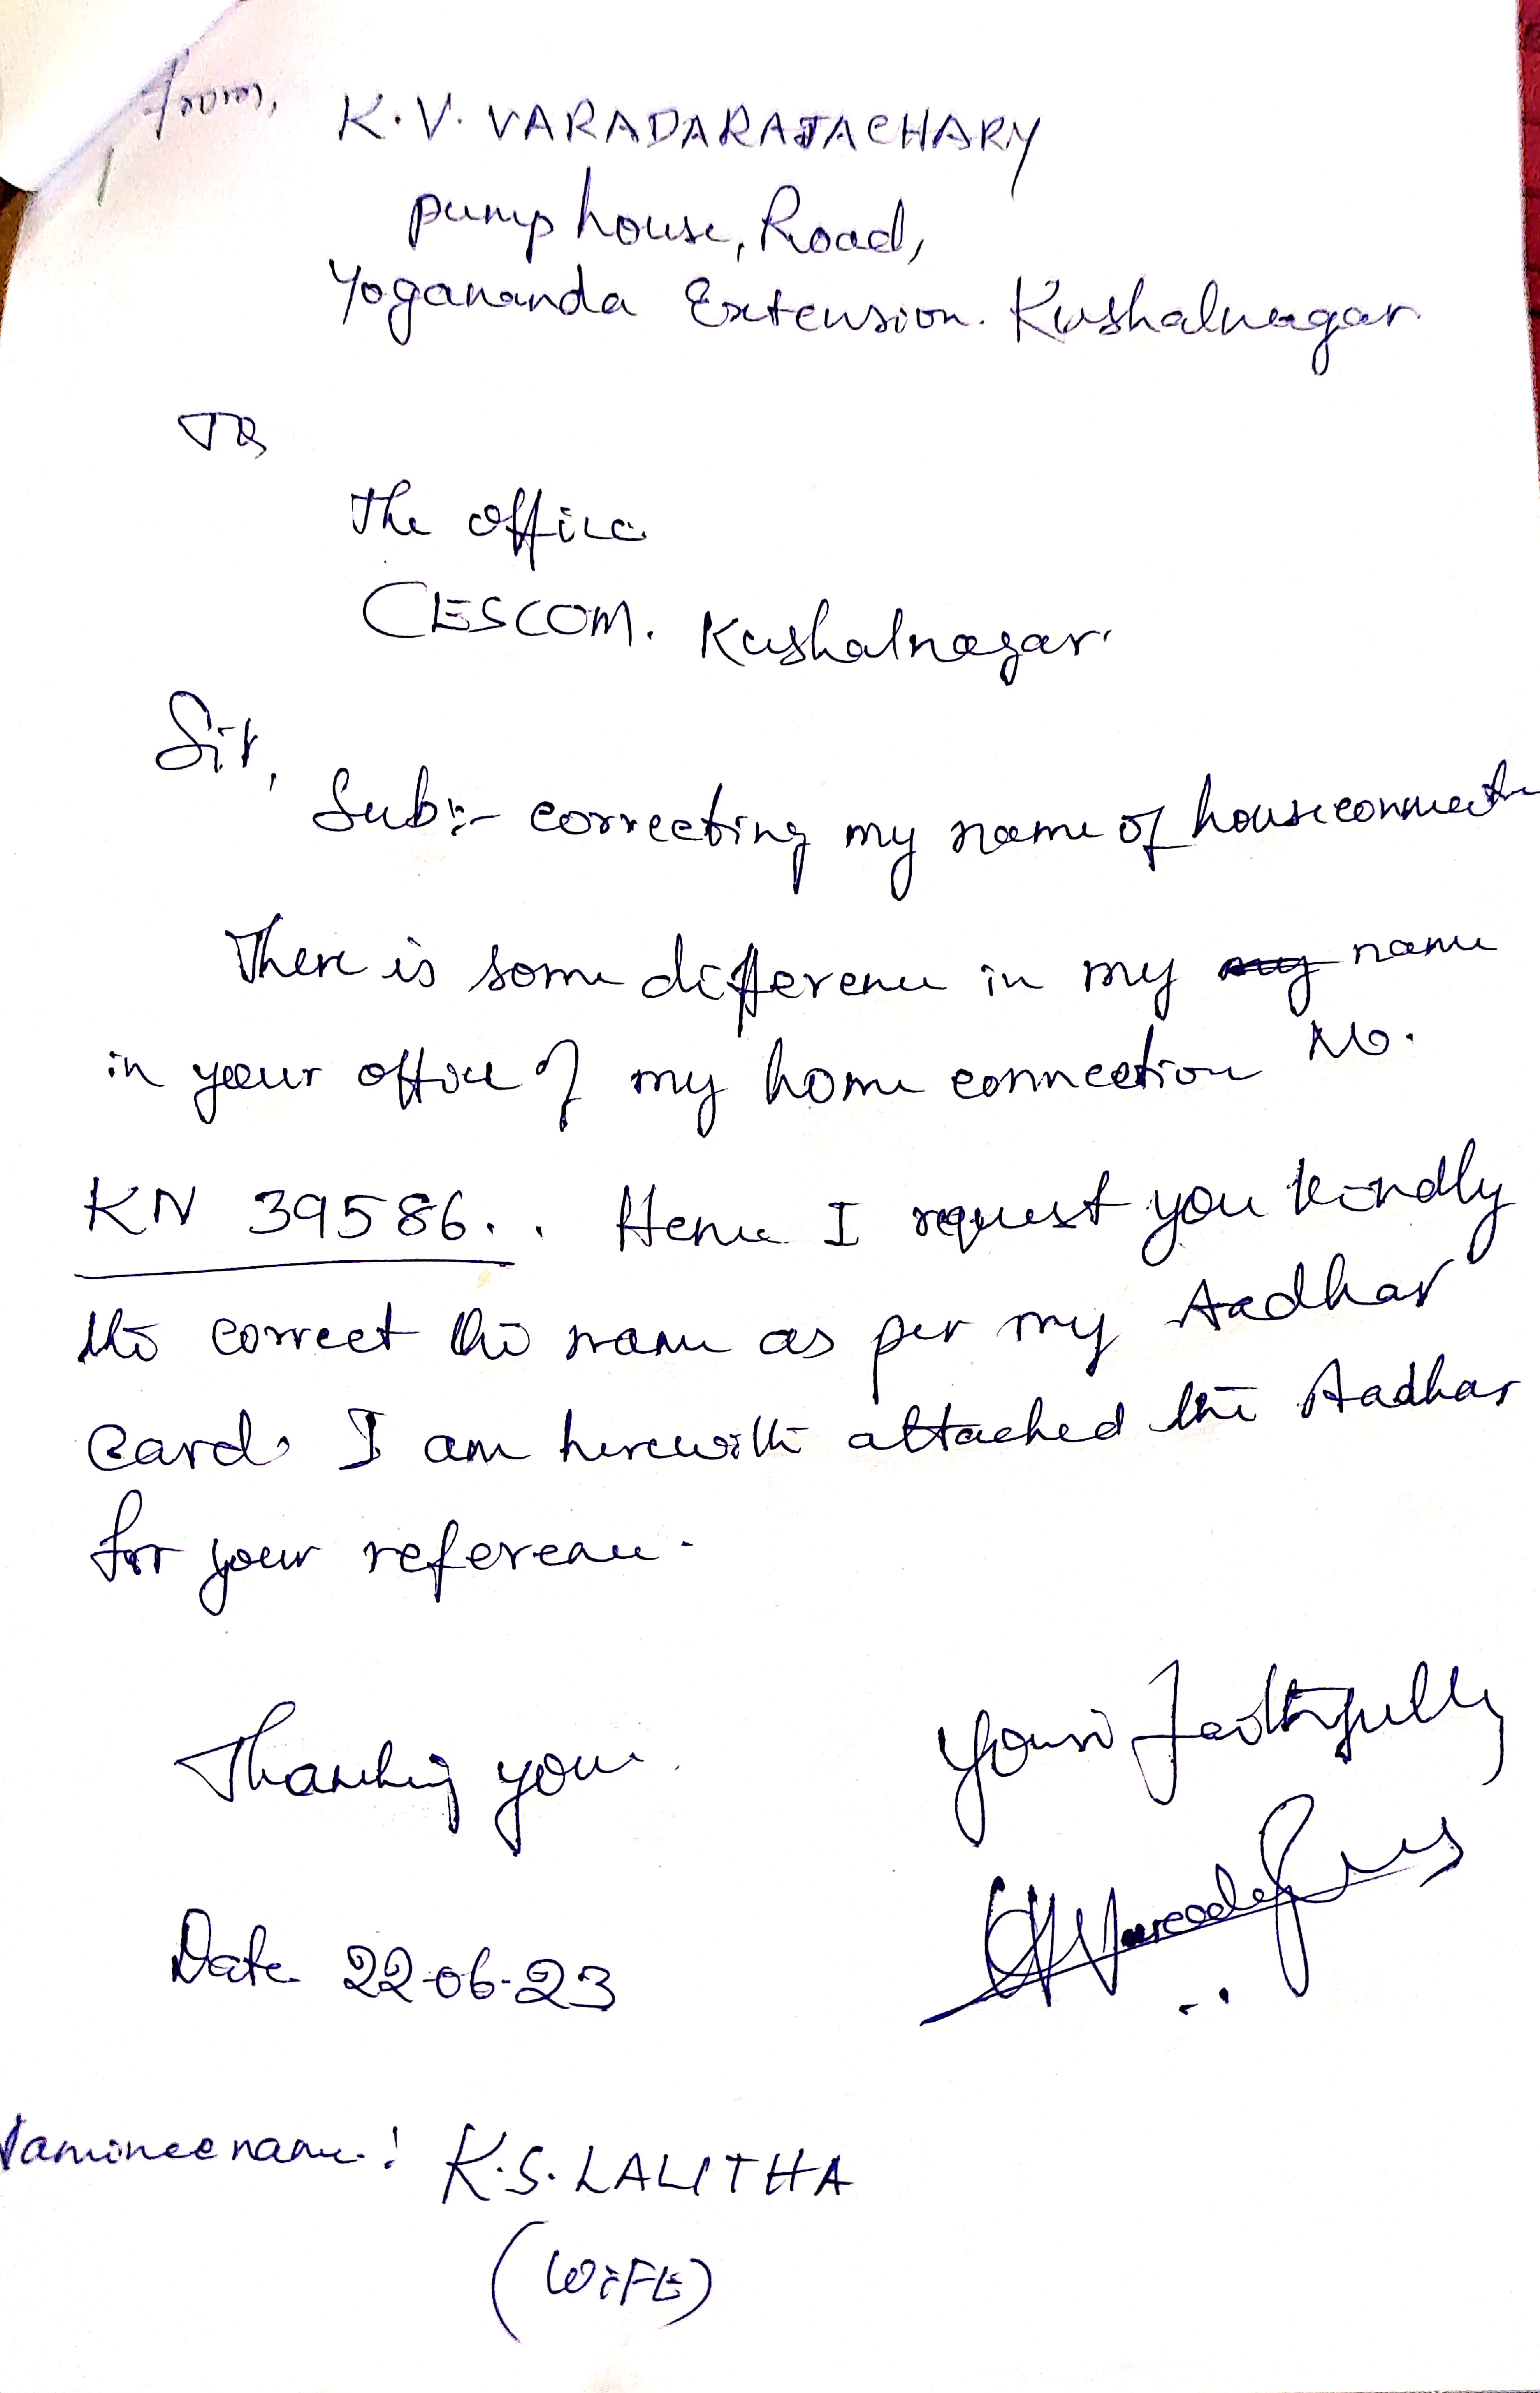 from,
K.V. VARADARAJACHARY
pump house, Road,
Yogananda Extension. Kushalnagar
To
The office
CESCOM. Kushalnagar.
Sir,
Sub:- correcting my name of house connectn
There is some difference in my my name
in your office of my home connection No.
KN 39586.. Hence I request you kindly
the correct the name as per my Aadhar
Card. I am herewith attached the Aadhar
for your reference.
Thanking you.
Yours faithfully
Date 22-06-23
Namineename:! K.S. LALITHA
(WiFE)